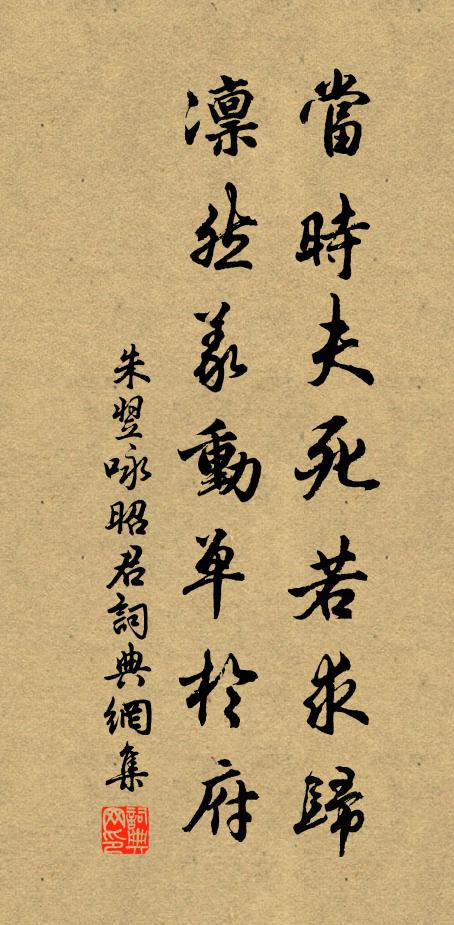 當時夫死若求歸
凛然義動单於府
朱翌咏昭君詞典網集
詞典网印